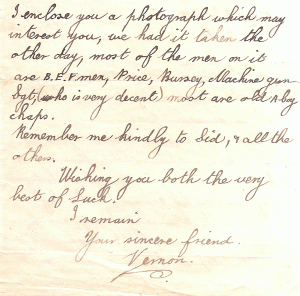 I enclose you a photograph which may
interest you, we had it taken the
other day, most of the men on it
are B.E.F. men, Price, Bursey, Machine gun
Sgt, (who is very decent) most are old A-boy
chaps.
Remember me kindly to Sid, & all the
others.
Wishing you both the very
best of Luck.
I remain
Your sincere friend.
Vernon.